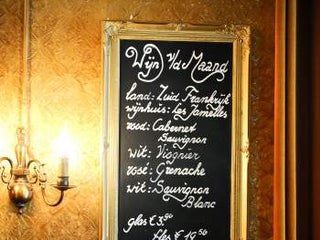 Wijn v/d Maand
land: Zuid Frankrijk
wijnhuis: Les Jamelles
rood: Cabernet
Sauvignon
wit: Viognier
rosé: Grenache
wit: Sauvignon
Blanc
glas € 3.50
fles € 19.50